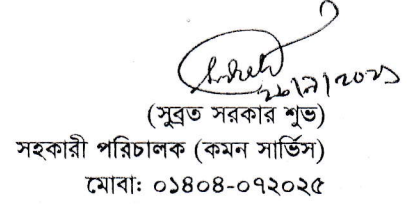 (সুব্রত সরকার শুভ)
সহকারী পরিচালক (কমন সার্ভিস)
মোবা: ০১৪০৪-০৭২০২৫